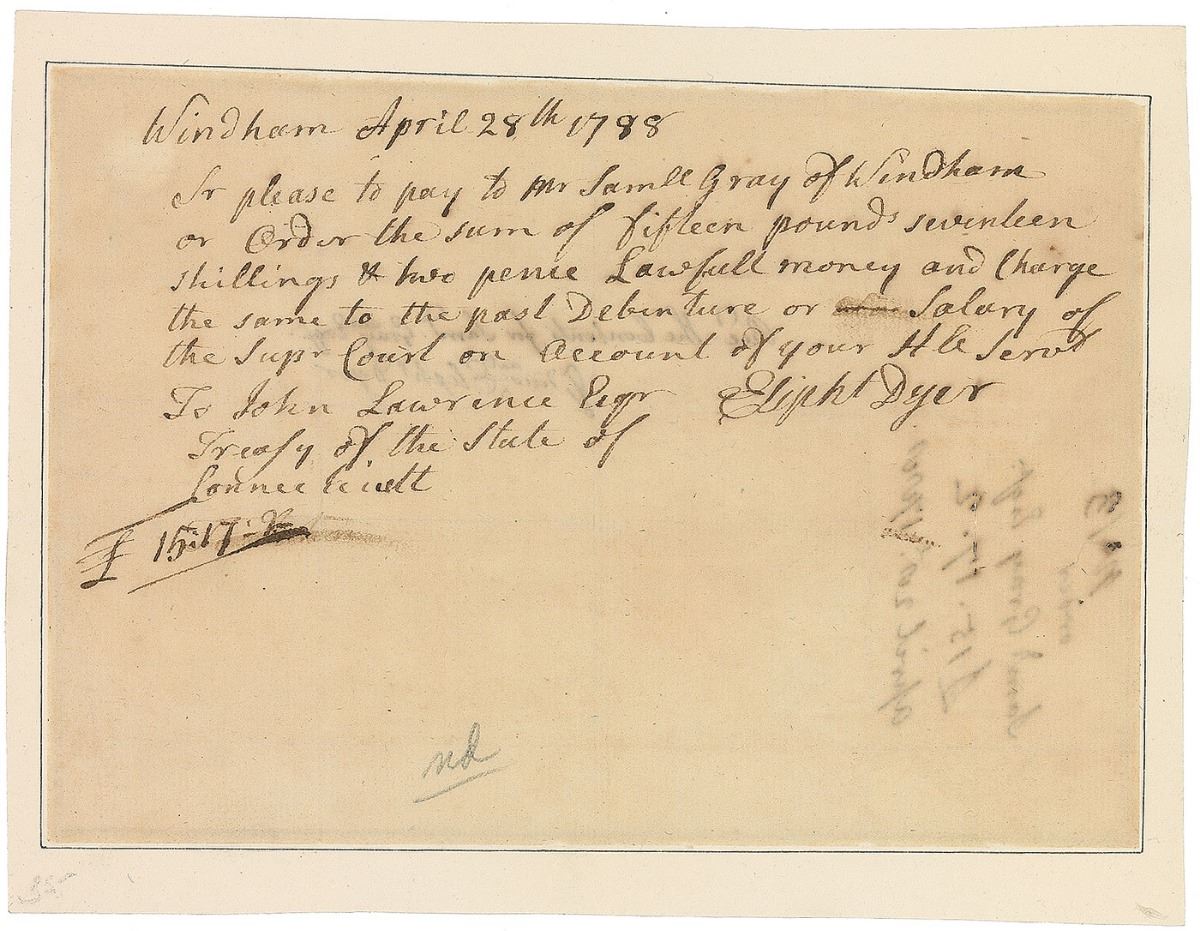 Windham April 28th 1788
Sr please to pay to Mr Samll Gray of Windham
or Order the sum of fifteen pounds seventeen
shillings & two pence Lawfull money and Charge
the same to the past Debenture or Salary of
the Supr Court on Account of your Hle Servt
To John Lawrence Esqr Elipht Dyer
Treasy of the State of
Connecticutt
£ 15:17:2
nd